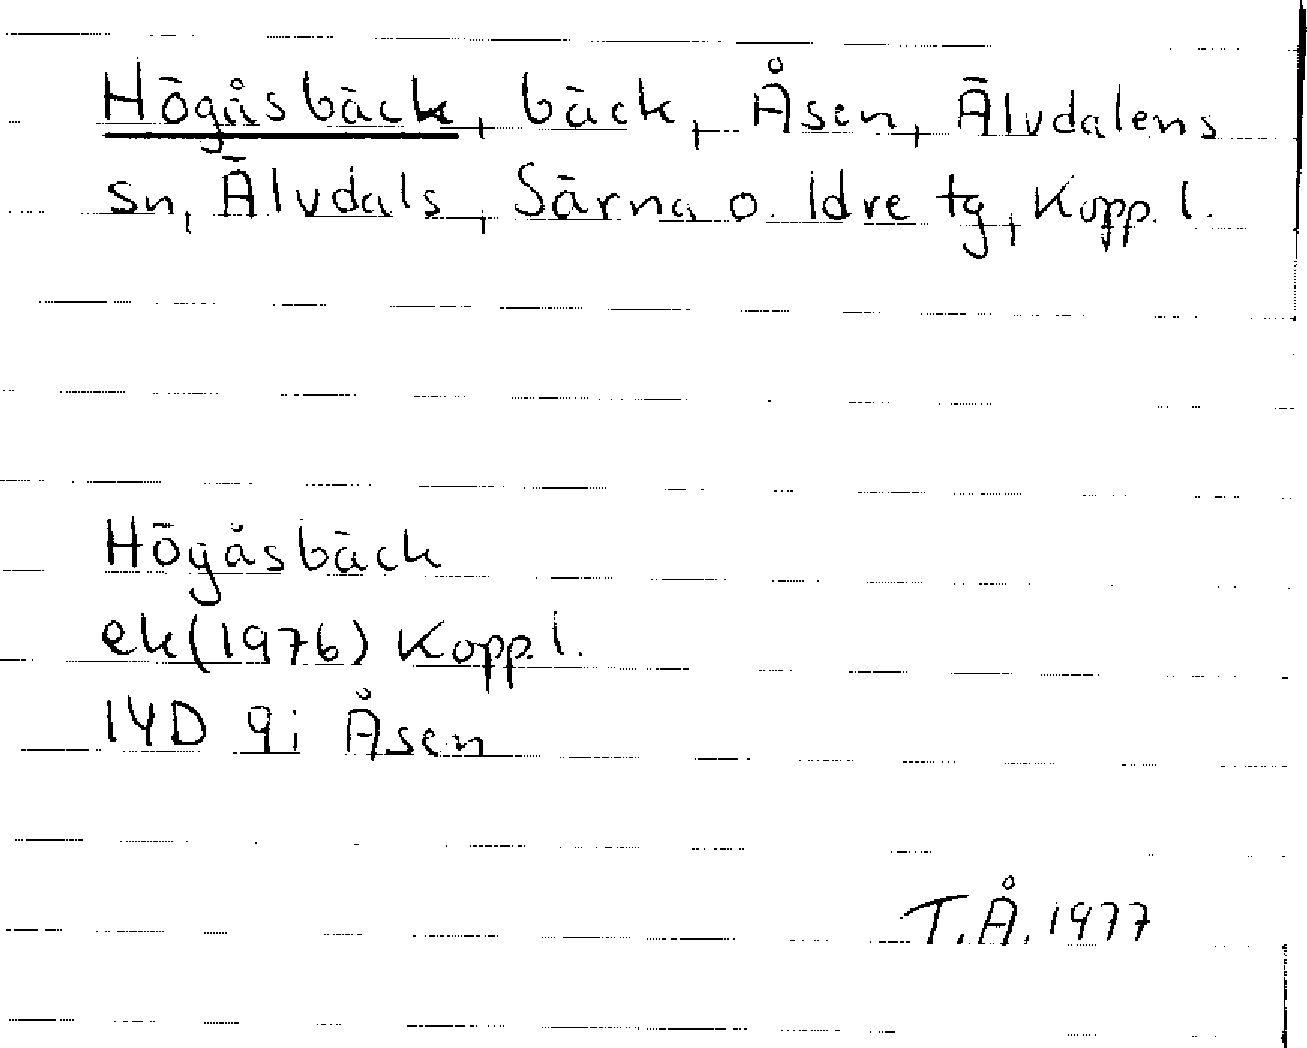 Högåsbäck, bäck, Åsen, Älvdalens
sn, Älvdals, Särna o. Idre tg, Kopp. l.
Högåsbäck
ek(1976) Kopp. l.
14D 9i Åsen
T.Å. 1977